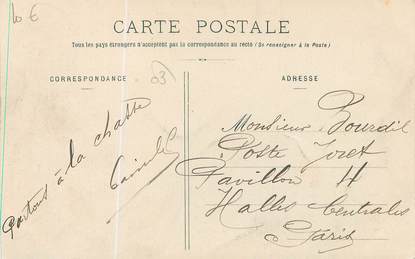 10 €
CARTE POSTALE
Tous les pays étrangers n'acceptent pas la correspondance au recto (Se renseigner à la Poste)
CORRESPONDANCE
03
ADRESSE
Partons à la chasse
Monsieur Bourdil
Poste Joret
Pavillon 4
Halles Centrales
Paris